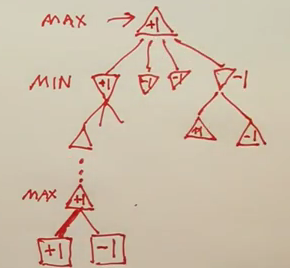 MAX → +1
MIN +1 -1 -1 -1
+1 -1
MAX +1
+1 -1